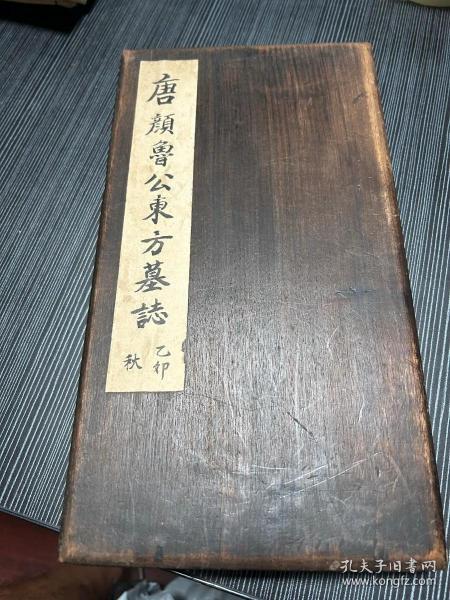 唐顔魯公東方墓誌
乙卯
秋
孔夫子旧书网
www.kongfz.com